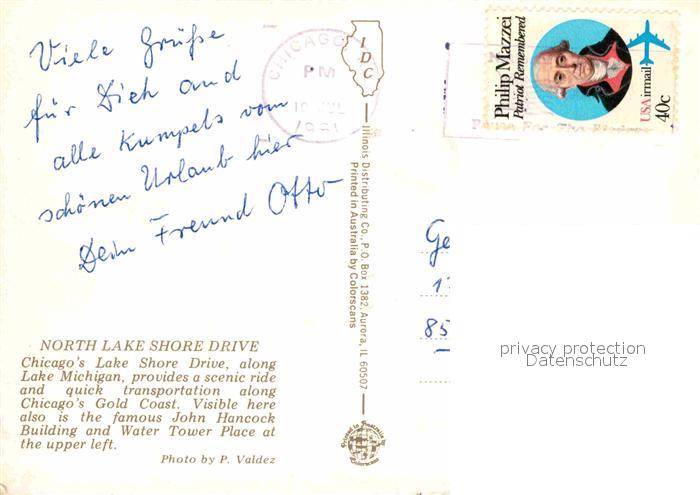 Viele Grüße
für Dich und
alle Kumpels vom
schönen Urlaub hier
Dein Freund Otto
NORTH LAKE SHORE DRIVE
Chicago's Lake Shore Drive, along
Lake Michigan, provides a scenic ride
and quick transportation along
Chicago's Gold Coast. Visible here
also is the famous John Hancock
Building and Water Tower Place at
the upper left.
Photo by P. Valdez
CHICAGO
PM
1981
IDC
Illinois Distributing Co., P.O. Box 1382, Aurora, IL 60507
Printed in Australia by Colorscans
Printed in Australia by
Colorscans
Philip Mazzei
Patriot Remembered
USAirmail
40c
Ge
85
privacy protection
Datenschutz